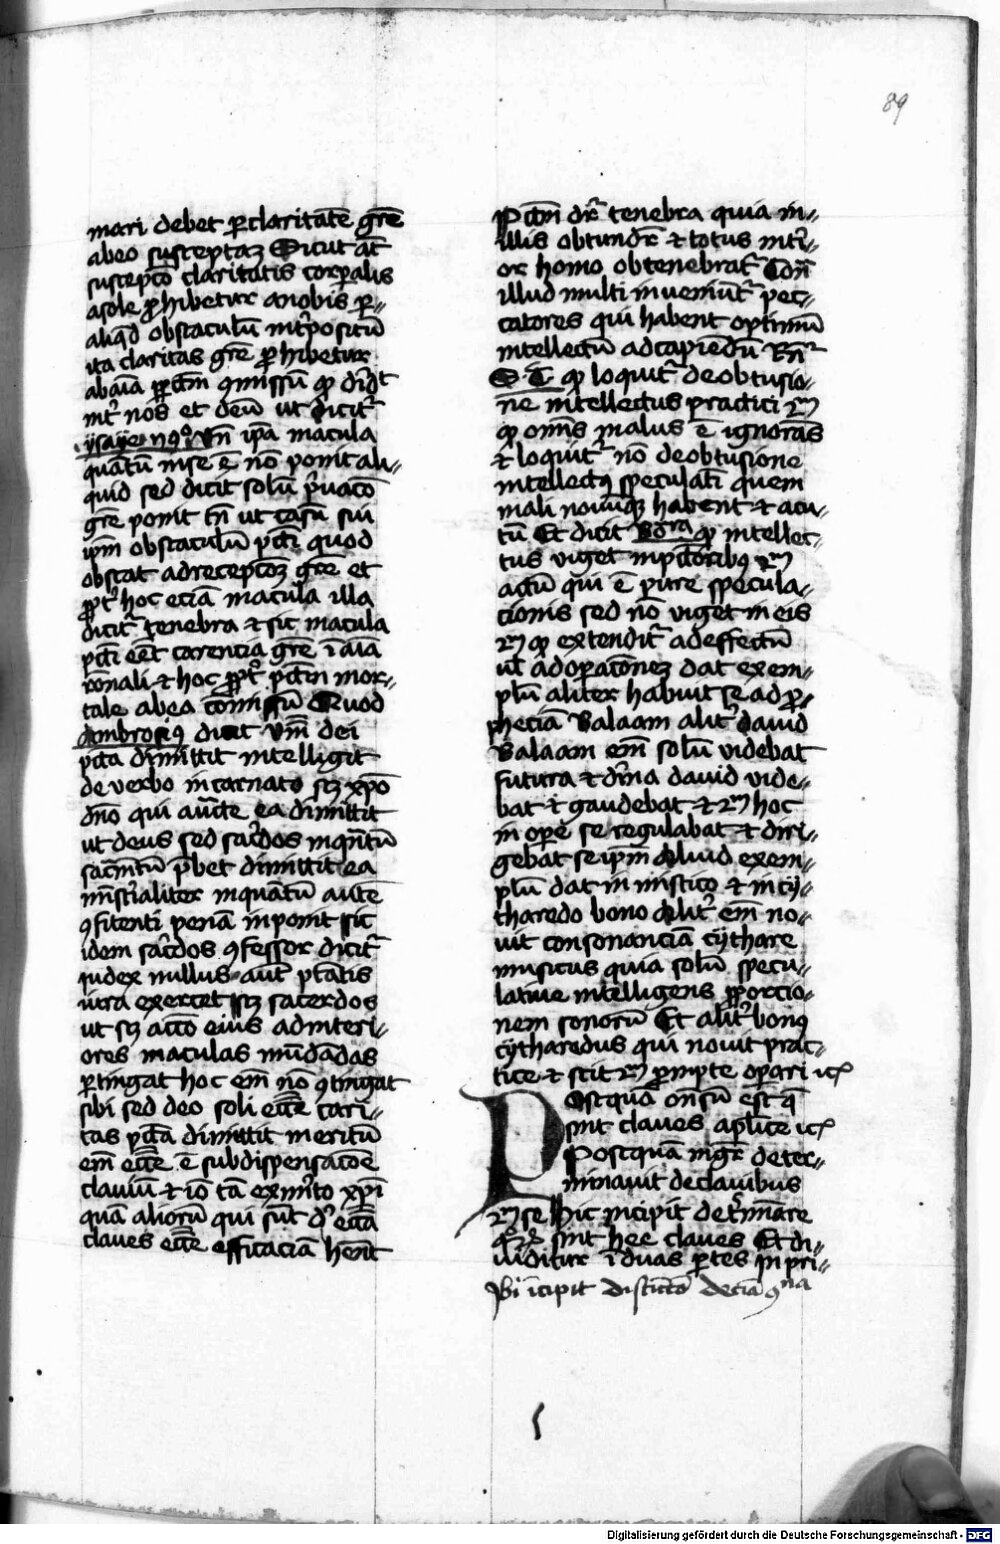 89
mari debet p claritatē grē
ab eo susceptaz Sicut at̄
suscepcō claritatis corpalis
a sole prohibetur a nobis p
aliqd obstaculū int̄positū
ita claritas grē prohibetur
ab aīa pp pctm 9missū qp diīdt
int̄ nos et deū ut dicit̄
ysaye Vn̄ ipā macula
quātū in se ē nō ponit ali=
quid sed dicit solū pͥuacō
grē ponit tn̄ ut casū sui
ipm̄ obstaculū pcti quod
obstat ad recepcōz grē et
ppt̄ hoc eciā macula illa
dicit̄ tenebra et sic macula
pcti eēt carencia grē ī aīa
rōnali et hoc ppt̄ pctm mor=
tale ab ea cōmissū Quod
Ambrosi9 dicit Vm̄ dei
pcta dimittit intelligit
de verbo incarnato scz xpō
dn̄o qui auctē ea dimittit
ut deus sed sac̄dos inqntū
sacm̄tū pbet dimittit ea
mīst̄ialiter inquātū autē
9fitenti penā inponit sic
idem sac̄dos 9fessor dicit̄
iudex nullus aut̄ ptātis
iura exercet scz sacerdos
ut scz accō eius ad interi=
ores maculas mūdādas
ptingat hoc em̄ nō 9tingat
sibi sed deo soli ecctē cari=
tas pctā dimittit meritū
em̄ ecctē ē sub dispensacōe
clauiū et iō tā ex mīto xpi
quā aliorū qui sūt d' ecctā
claues ecctē efficaciam hēnt
Pctm̄ dr̄ tenebra quia in=
illis obtundr̄ et totus int̄i=
or homo obtenebrat̄ Con̄
illud multi inueniūt̄ pec=
catores qui habent optimū
intellectū ad capiēdū Rn̄
S. T. qp loquit̄ de obtusio=
ne intellectus practici
qp om̄s malus ē ignorās
et loquit̄ nō de obtusione
intellect9 speculati quem
mali nonnūqz habent et acu=
tū Et dicit Bōra qp intellec=
tus viget in pctorib9
actū qui ē pure specula=
cionis sed nō viget in eis
qp extendit̄ ad effectū
ul ad opacōnez dat exem=
plū aliter habuit se ad p=
pheciā Balaam alit̄ dauid
Balaam em̄ solū videbat
futura et diuina dauid vide=
bat et gaudebat et hoc
in opē se regulabat et diri=
gebat se ipm̄ Aliud exem=
plū dat in mistico et in cy=
tharedo bono Alit̄ em̄ no=
uit consonanciā cythare
musicus quia solū specu=
latiue intelligens pporcio=
nem sonorū Et alit̄ bon9
cytharedus qui nouit prac=
tice et scit prompte opari ic
Postquā onsū est q
sint claues aplice ic
Postquam mgr̄ deter=
minauit de clauibus
se Hic incipit det̄miare
sint hee claues Et di=
uiditur ī duas ptes in pri=
ibi īcipit distinctō decīa 9na
Digitalisierung gefördert durch die Deutsche Forschungsgemeinschaft - DFG